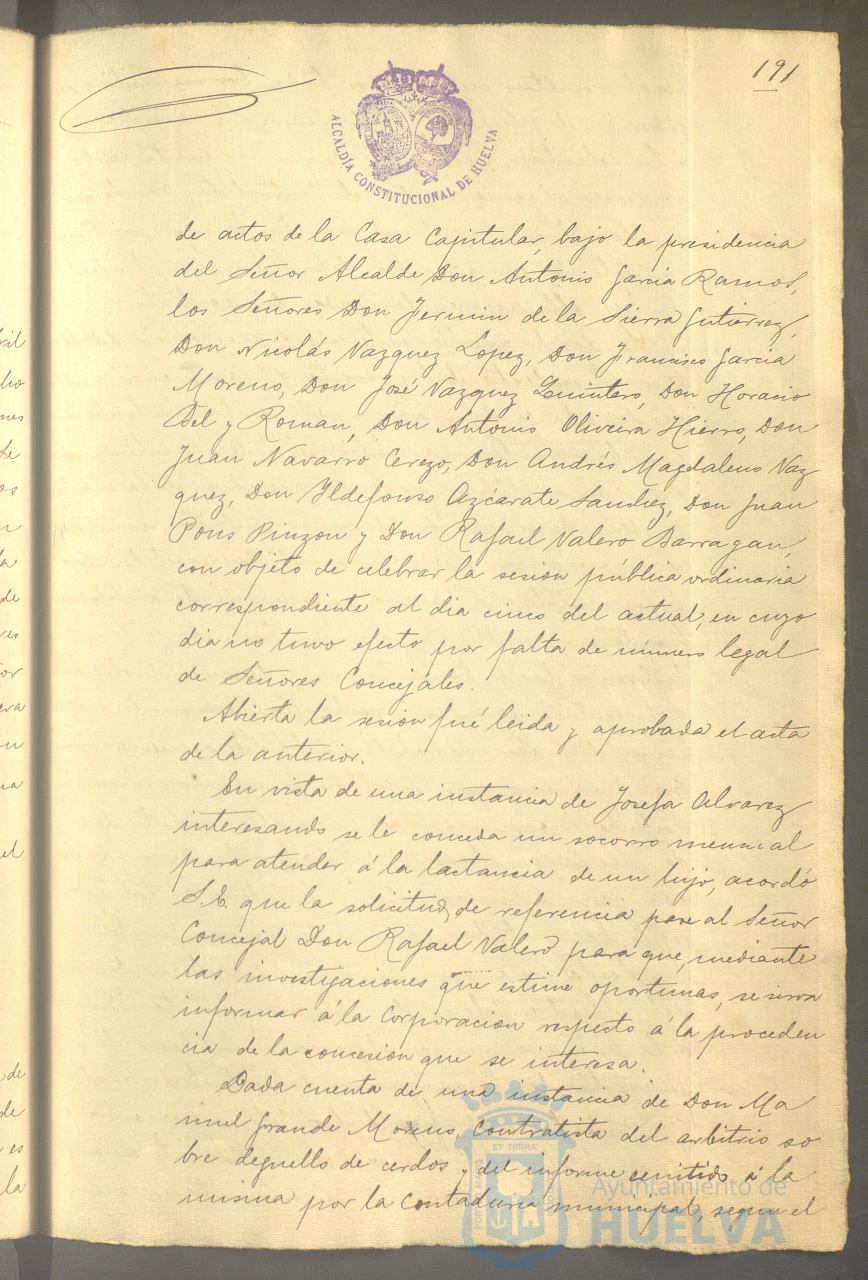 191
ALCALDÍA CONSTITUCIONAL DE HUELVA
de actos de la Casa Capitular, bajo la presidencia
del Señor Alcalde Don Antonio Garcia Ramos,
los Señores Don Fermin de la Sierra Gutierrez,
Don Nicolás Vazquez Lopez, Don Francisco Garcia
Moreno, Don José Vazquez Quintero, Don Horacio
Bel y Roman, Don Antonio Oliveira Hierro, Don
Juan Navarro Cerezo, Don Andrés Magdaleno Vaz
quez, Don Yldefonso Azcárate Sanchez, Don Juan
Pons Pinzon y Don Rafael Valero Barragan,
con objeto de celebrar la sesion pública ordinaria
correspondiente al dia cinco del actual, en cuyo
dia no tuvo efecto por falta de número legal
de Señores Concejales.
Abierta la sesion fué leida y aprobada el acta
de la anterior.
En vista de una instancia de Josefa Alvarez
interesando se le conceda un socorro mensual
para atender á la lactancia de un hijo, acordó
S.E. que la solicitud de referencia pase al Señor
Concejal Don Rafael Valero para que, mediante
las investigaciones que estime oportunas, se sirva
informar á la Corporacion respecto á la proceden
cia de la concesion que se interesa.
Dada cuenta de una instancia de Don Ma
nuel Grande Moreno, contratista del arbitrio so
bre deguello de cerdos y del informe emitido á la
misma por la Contaduria municipal, segun el
ET TERRÆ
Ayuntamiento de
HUELVA